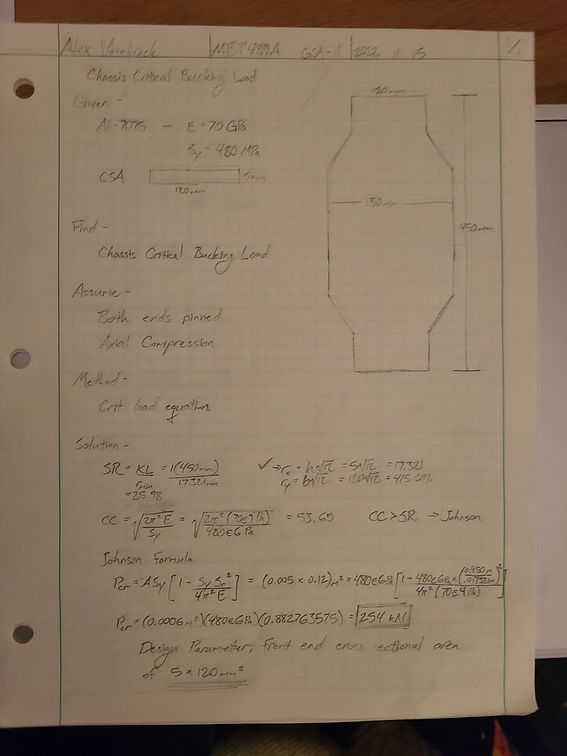 Alex Vernbeck MET489A GSA-11 2022 11 15 1/1
Chassis Critical Buckling Load
Given -
Al-7075 — E = 70 GPa
Sy = 480 MPa
CSA 5mm
120mm
120mm
180mm
450mm
Find -
Chassis Critical Buckling Load
Assume -
Both ends pinned
Axial Compression
Method -
Crit load equation
Solution -
SR = KL/rmin = 1(450mm)/17.321mm = 25.98
✓→ rx = h√12 = 5√12 = 17.321
ry = b√12 = 120√12 = 415.692
CC = √(2π²E/Sy) = √(2π²(70E9 Pa)/480E6 Pa) = 53.65 CC > SR → Johnson
Johnson Formula
Pcr = ASy[1 - SySr²/4π²E] = (0.005 x 0.12)m² x 480E6Pa[1 - 480E6Pa x (0.450m/.01732m)²/4π²(70E9 Pa)]
Pcr = (0.0006m²)(480E6Pa)(0.882763575) = 254 kN
Design Parameter, front end cross sectional area
of 5 x 120mm²